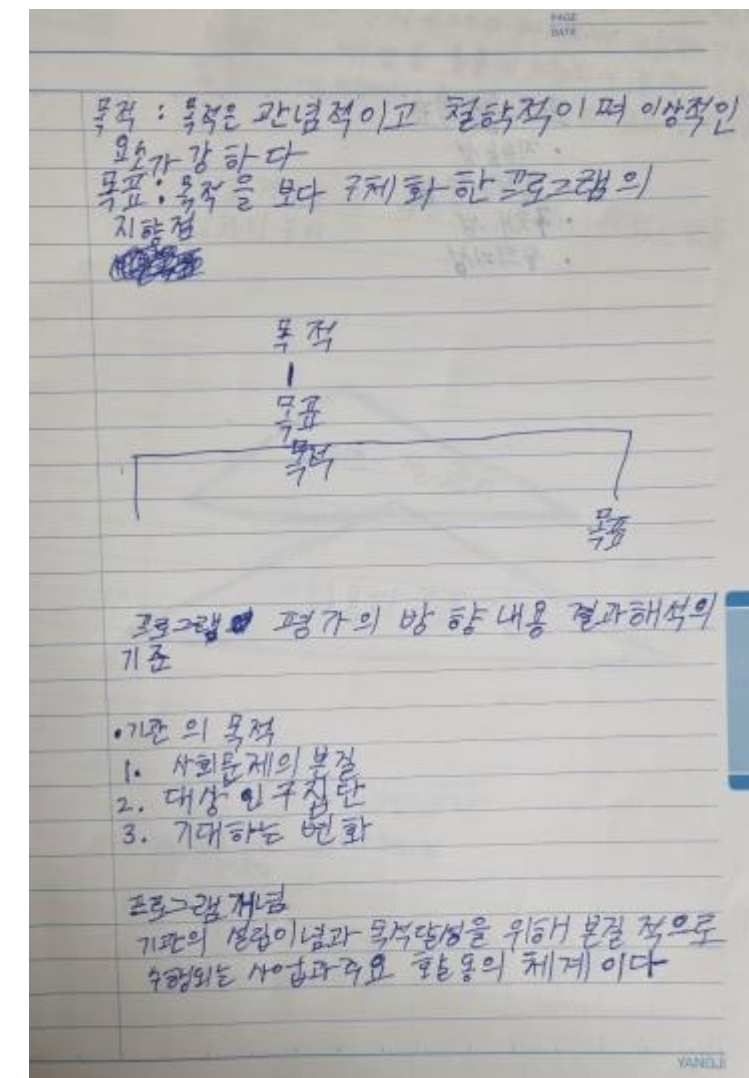 PAGE
DATE
목적 : 목적은 관념적이고 철학적이며 이상적인
요소가 강하다
목표 : 목적을 보다 구체화 한 프로그램의
지향점
목적
목표
목적
목표
프로그램 평가의 방향 내용 결과해석의
기준
•기관의 목적
1. 사회문제의 본질
2. 대상 인구집단
3. 기대하는 변화
프로그램 개념
기관의 설립이념과 목적달성을 위해 본질적으로
수행되는 사업과 주요 활동의 체계이다
YANGJI